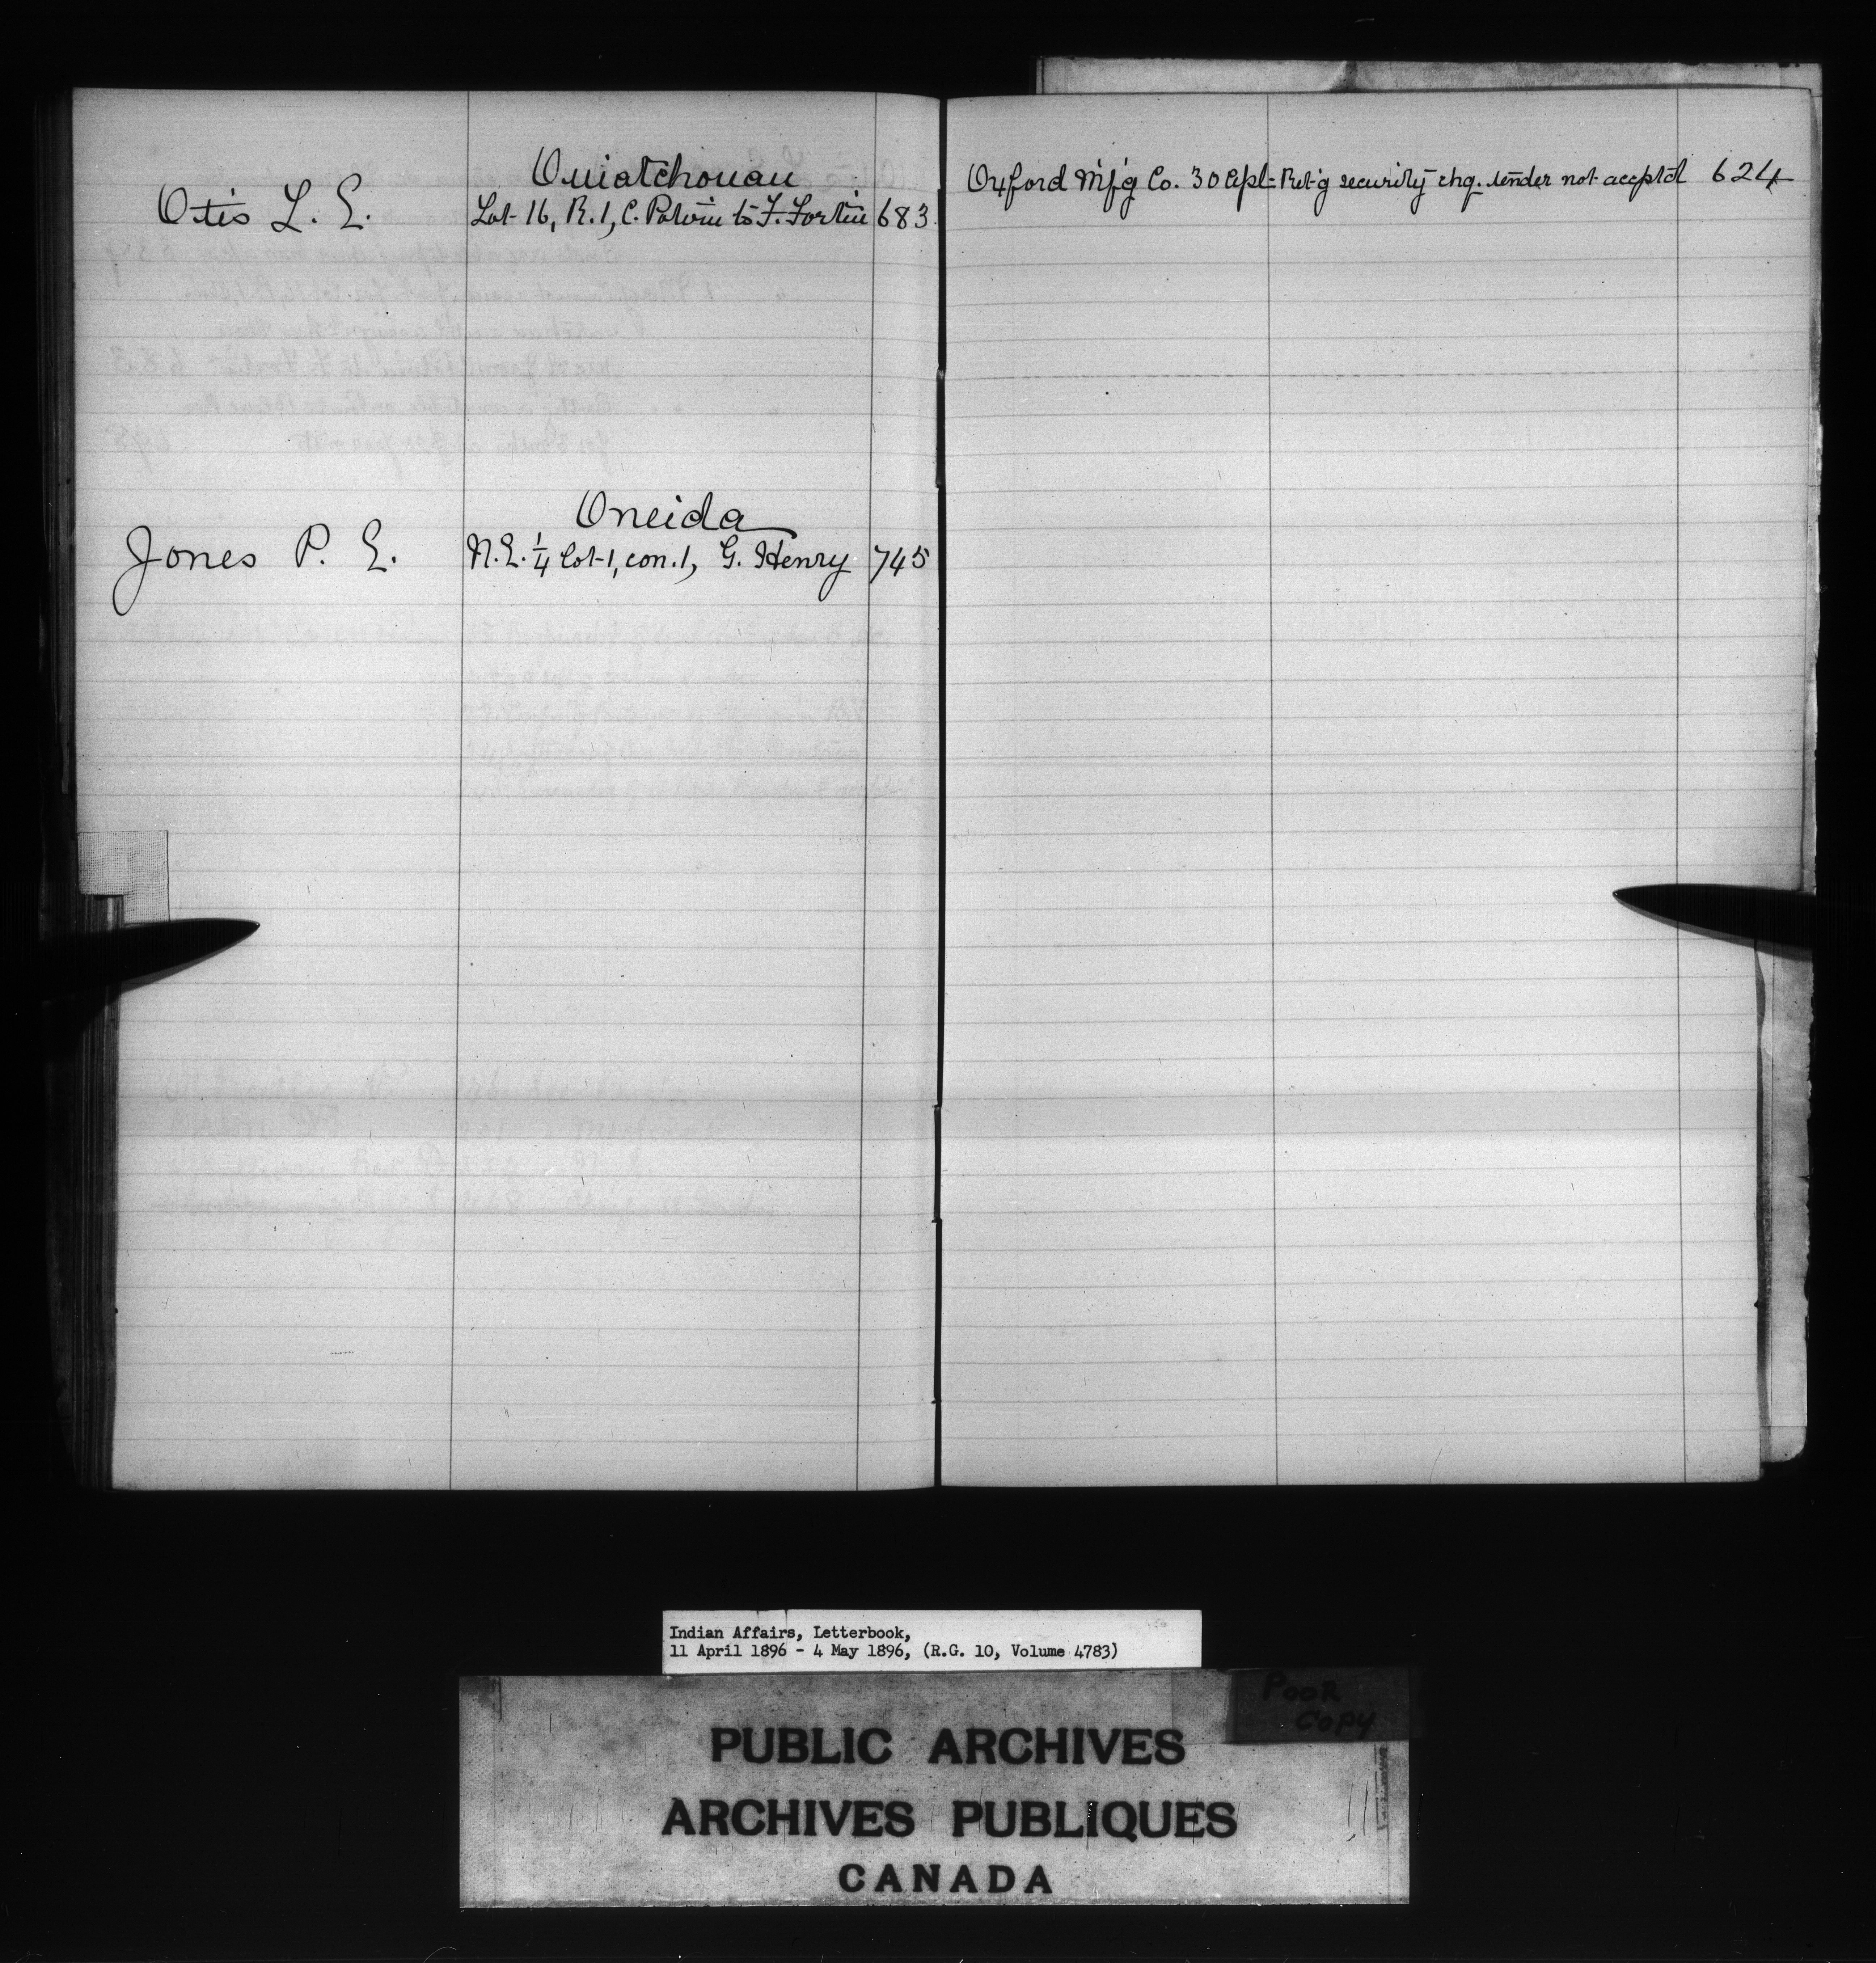 Ouiatchouan
Otis L. E. Lot 16, R. 1, C. Potvin to F. Fortin 683
Oneida
Jones P. E. N.E. 1/4 lot 1, con. 1, G. Henry 745
Oxford M'f'g Co. 30 Apl Ret'g security chq. tender not accpt'd 624
Indian Affairs, Letterbook,
11 April 1896 - 4 May 1896, (R.G. 10, Volume 4783)
POOR
COPY
PUBLIC ARCHIVES
ARCHIVES PUBLIQUES
CANADA